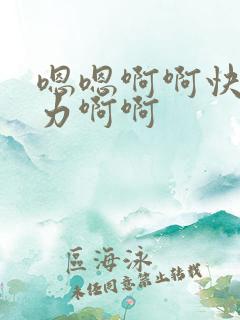 嗯嗯啊啊快
力啊啊
區海泳
未经同意禁止转载